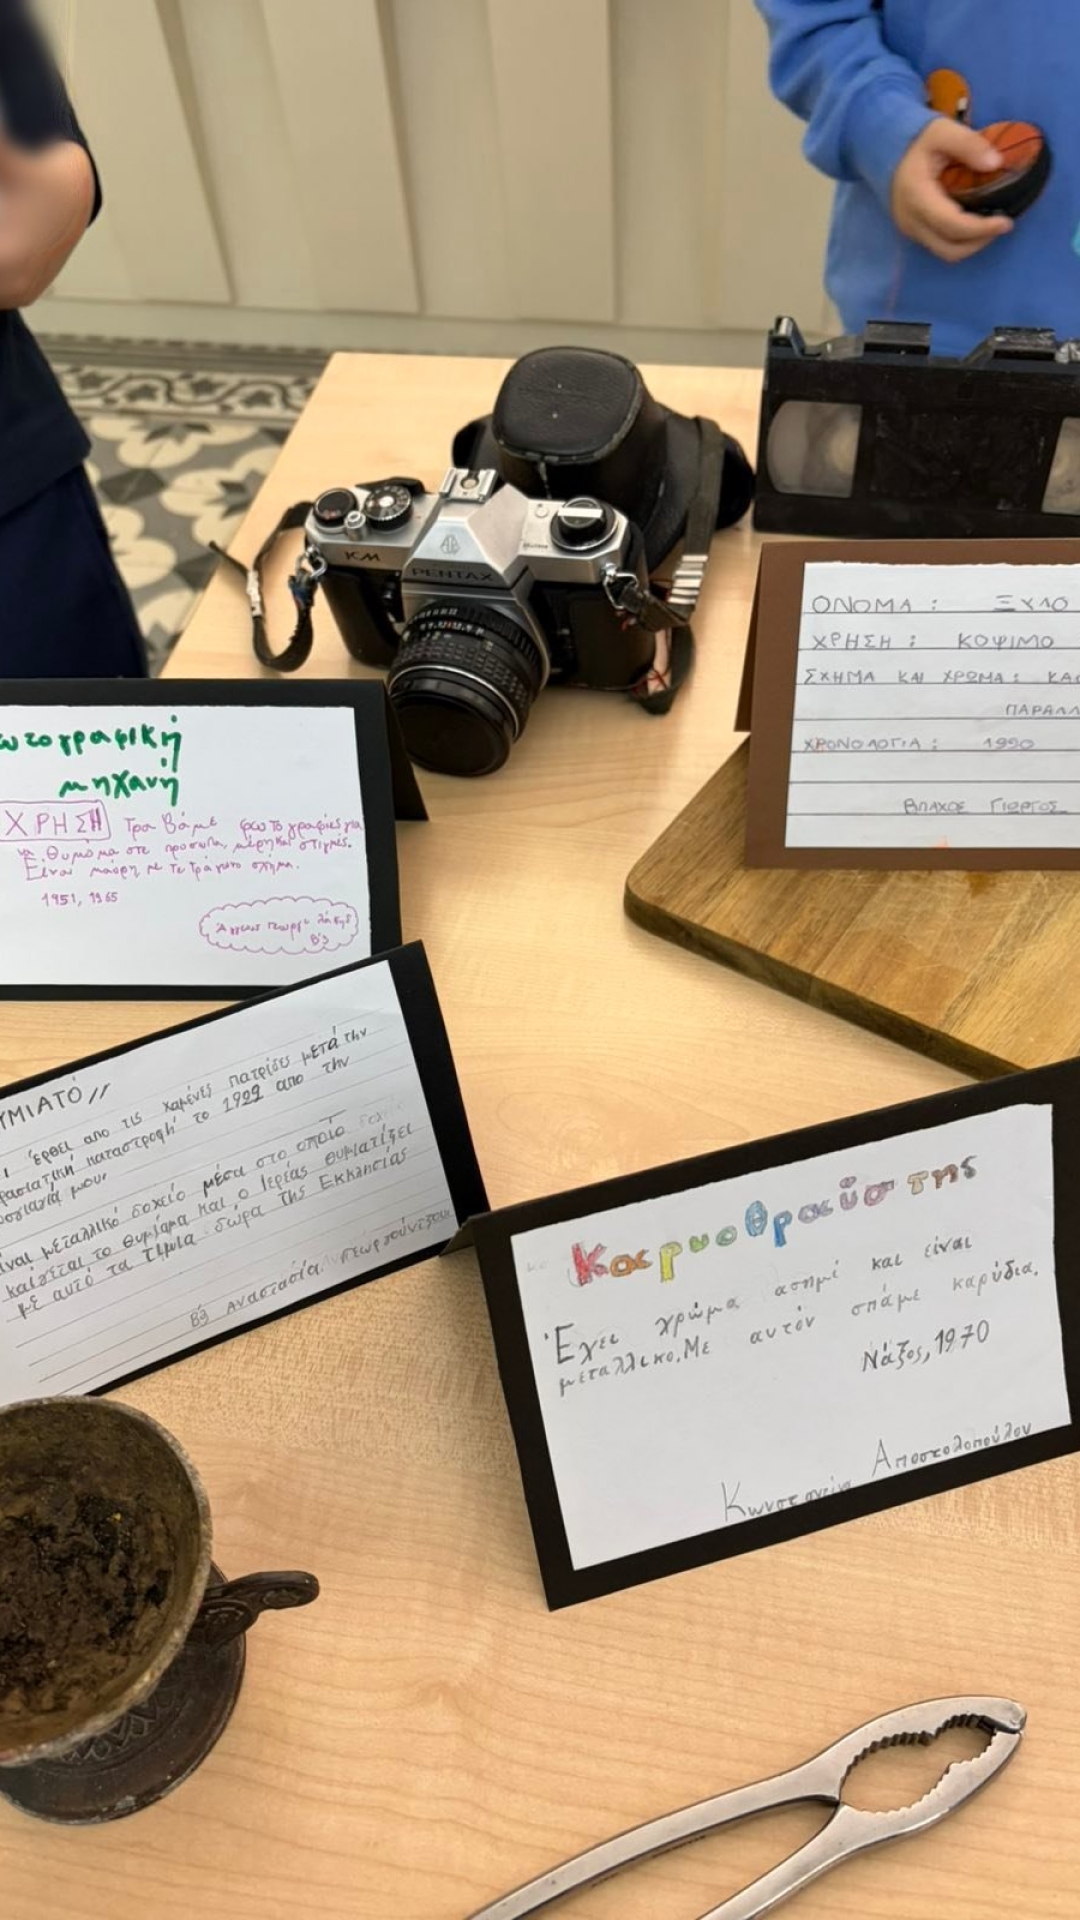 KM
PENTAX
ΟΝΟΜΑ : ΞΥΛΟ
ΧΡΗΣΗ : ΚΟΨΙΜΟ
ΣΧΗΜΑ ΚΑΙ ΧΡΩΜΑ :
ΠΑΡΑΛΛ
ΧΡΟΝΟΛΟΓΙΑ : 1990
ΒΛΑΧΟΣ ΓΙΩΡΓΟΣ
ωτογραφική
μηχανή
ΧΡΗΣΗ Τραβάμε φωτογραφίες για
να θυμόμαστε πρόσωπα, μέρη και στιγμές.
Είναι μαύρη με τετράγωνο σχήμα.
1951, 1965
Β'3
ΥΜΙΑΤΟ //
έρθει απο τις χαμένες πατρίδες μετά την
ρασιατική καταστροφή το 1922 απο την
μου.
ίναι μεταλλικό δοχείο μέσα στο οποίο
καίγεται το θυμίαμα και ο Ιερέας θυμιατίζει
με αυτό τα τίμια δώρα της Εκκλησίας
Β'3 Αναστασία
Καρυοθραύστης
Έχει χρώμα ασημί και είναι
μεταλλικο. Με αυτόν σπάμε καρύδια.
Νάξος, 1970
Αποστολοπούλου